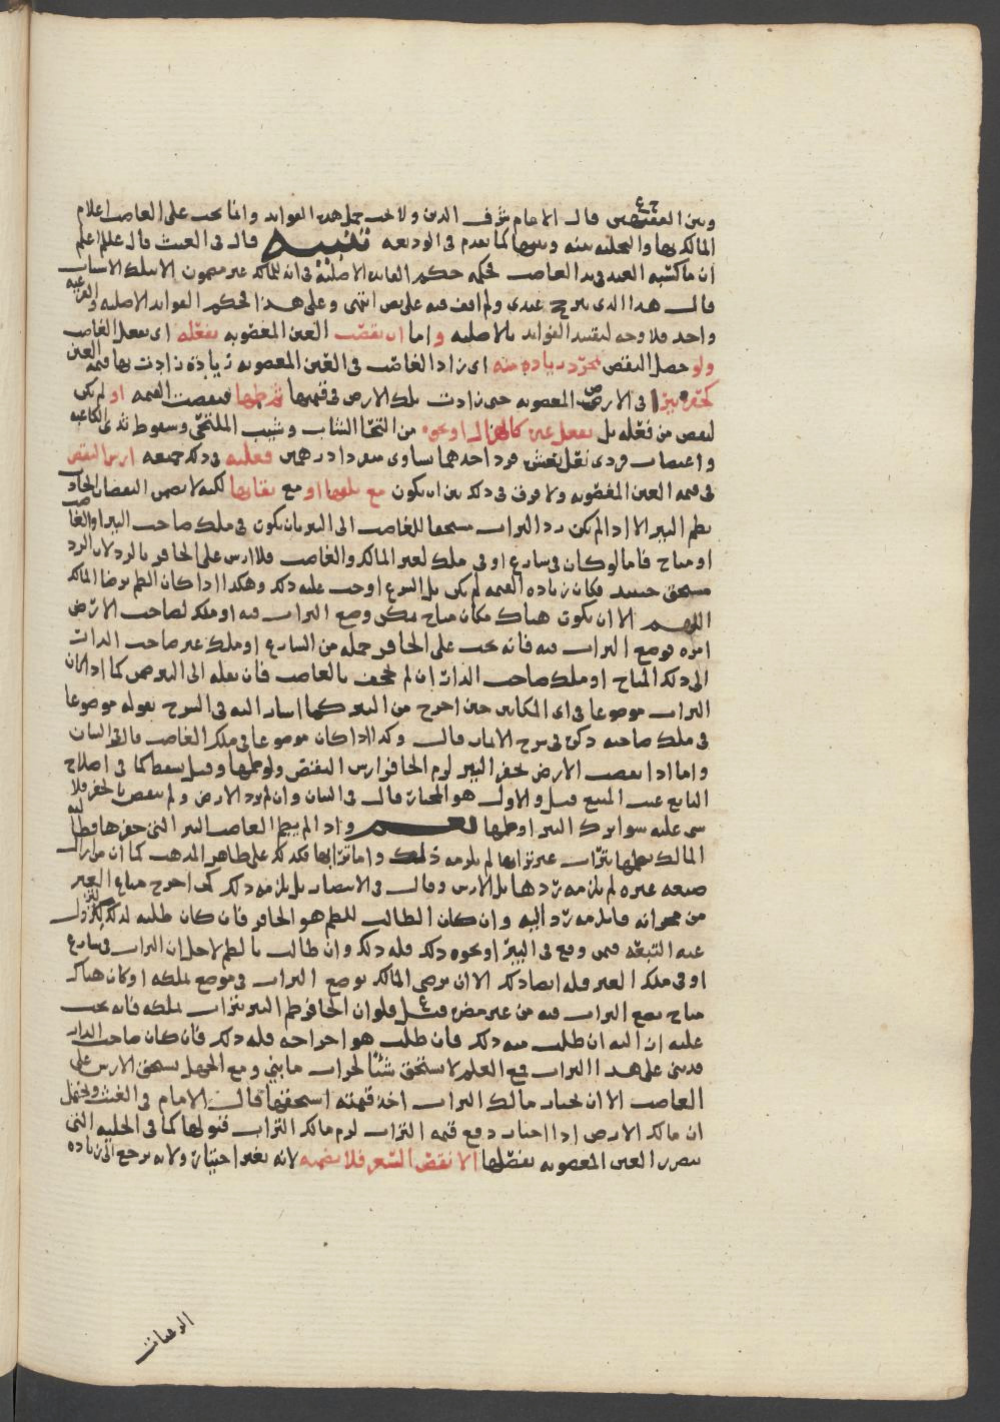 وبين المقتضى قال الامام شرف الدين ولا يجب حمل هذه الفوائد وانما يجب على الغاصب اعلام
المالك بها والتخلية بينه وبينها كما تقدم في الوديعة تنبيه قال في الغيث قال علم اعلم
ان ما كسبه العبد في يد الغاصب فحكمه حكم الفائدة الاصلية في انه للمالك غير مضمون الا بتلك الاسباب
قال هذا الذي يترجح عندي ولم اقف فيه على نص انتهى وعلى هذا الحكم الفوائد الاصلية والفرعية
واحد فلا وجه لتقييد الفوائد بالاصلية واما ان نقصت العين المغصوبة بفعله اي بفعل الغاصب
ولو حصل النقص بمجرد زيادة منه اي زاد الغاصب في العين المغصوبة زيادة زادت بها قيمة العين
كحفر بئر في الارض المغصوبة حتى زادت تلك الارض في قيمتها ثم طمها فنقصت القيمة او لم يكن
النقص من فعله بل بفعل غيره كالهزال او نحوه من التحاء الشاب وشيب الملتحي وسقوط ثدي الكاعبة
واغتصاب فردي نعل نقص فرد احدهما يساوي درهمين فعليه في ذلك جميعه ارش النقص
في قيمة العين المغصوبة ولا فرق في ذلك بين ان يكون مع تلفها او مع بقائها لكنه لا يضمن النقصان الحادث
بطم البئر الا اذا لم يكن رد التراب مستحقا للغاصب الى البئر بان يكون في ملك صاحب البئر او الغاصب
او مباح فاما لو كان في شارع او في ملك لغير المالك والغاصب فلا ارش على الحافر بالرد لان الرد
مستحق حينئذ فكان زيادة القيمة لم تكن بل الشرع اوجب عليه ذلك وهكذا اذا كان الطم برضا المالك
اللهم الا ان يكون هناك مكان مباح يمكن وضع التراب فيه او ملك لصاحب الارض
امره بوضع التراب فيه فانه يجب على الحافر حمله من الشارع او ملك غير صاحب الدار
الى ذلك المباح او ملك صاحب الدار ان لم يجحف بالغاصب فان نقله الى البئر ضمن كما اذا كان
التراب موضوعا في اي المكانين حين اخرج من البئر كما اشار اليه في الشرح بقوله موضوعا
في ملك صاحبه ذكره في شرح الاثمار قال وكذا اذا كان موضوعا في ملك الغاصب قال في البيان
واما اذا نقصت الارض بحفر البئر لزم الحافر ارش النقص ولو طمها وقيل يسقط كما في اصلاح
البائع عيب المبيع قيل والاول هو المختار قال في البيان وان لم تزد الارض ولم تنقص بالحفر فلا
شيء عليه سوا ترك البئر او طمها نعم واذا لم يطم الغاصب البئر التي حفرها فطالبه
المالك بطمها بتراب غير ترابها لم يلزمه ذلك واما ترابها فكذلك على ظاهر المذهب كما ان من ازال
صنعة غيره لم يلزمه ردها بل الارش وقال في الانتصار بل يلزمه ذلك كمن اخرج متاع الغير
من حجراته فانه يلزمه رده اليه وان كان الطالب للطم هو الحافر فان كان طلبه لذلك لتزول
عنه التبعة فيمن وقع في البئر او نحوه ذلك فله ذلك وان طالب بالطم لاجل ان التراب في شارع
او في ملك الغير فله ايضا ذلك الا ان يرضى المالك بوضع التراب في موضع بملكه او كان هناك
مباح يضع التراب فيه من غير مضرة قيل فلو ان الحافر طم البئر بتراب يملكه فانه يجب
عليه ان طلب منه ذلك فان طلب هو اخراجه فله ذلك فان كان صاحب الدار
قد بنى على هذا التراب فمع العلم لا يستحق شيئا لخراب ما بنى ومع الجهل يستحق الارش على
الغاصب الا ان يختار مالك التراب اخذ قيمته استحقها قال الامام في الغيث ويحتمل
ان مالك الارض اذا اختار دفع قيمة التراب لزم مالك التراب قبولها كما في الحلية التي
تتضرر العين المغصوبة بفصلها الا نقص السعر فلا يضمنه لانه بغير اختياره ولانه يرجع الى زيادة
الرغبات